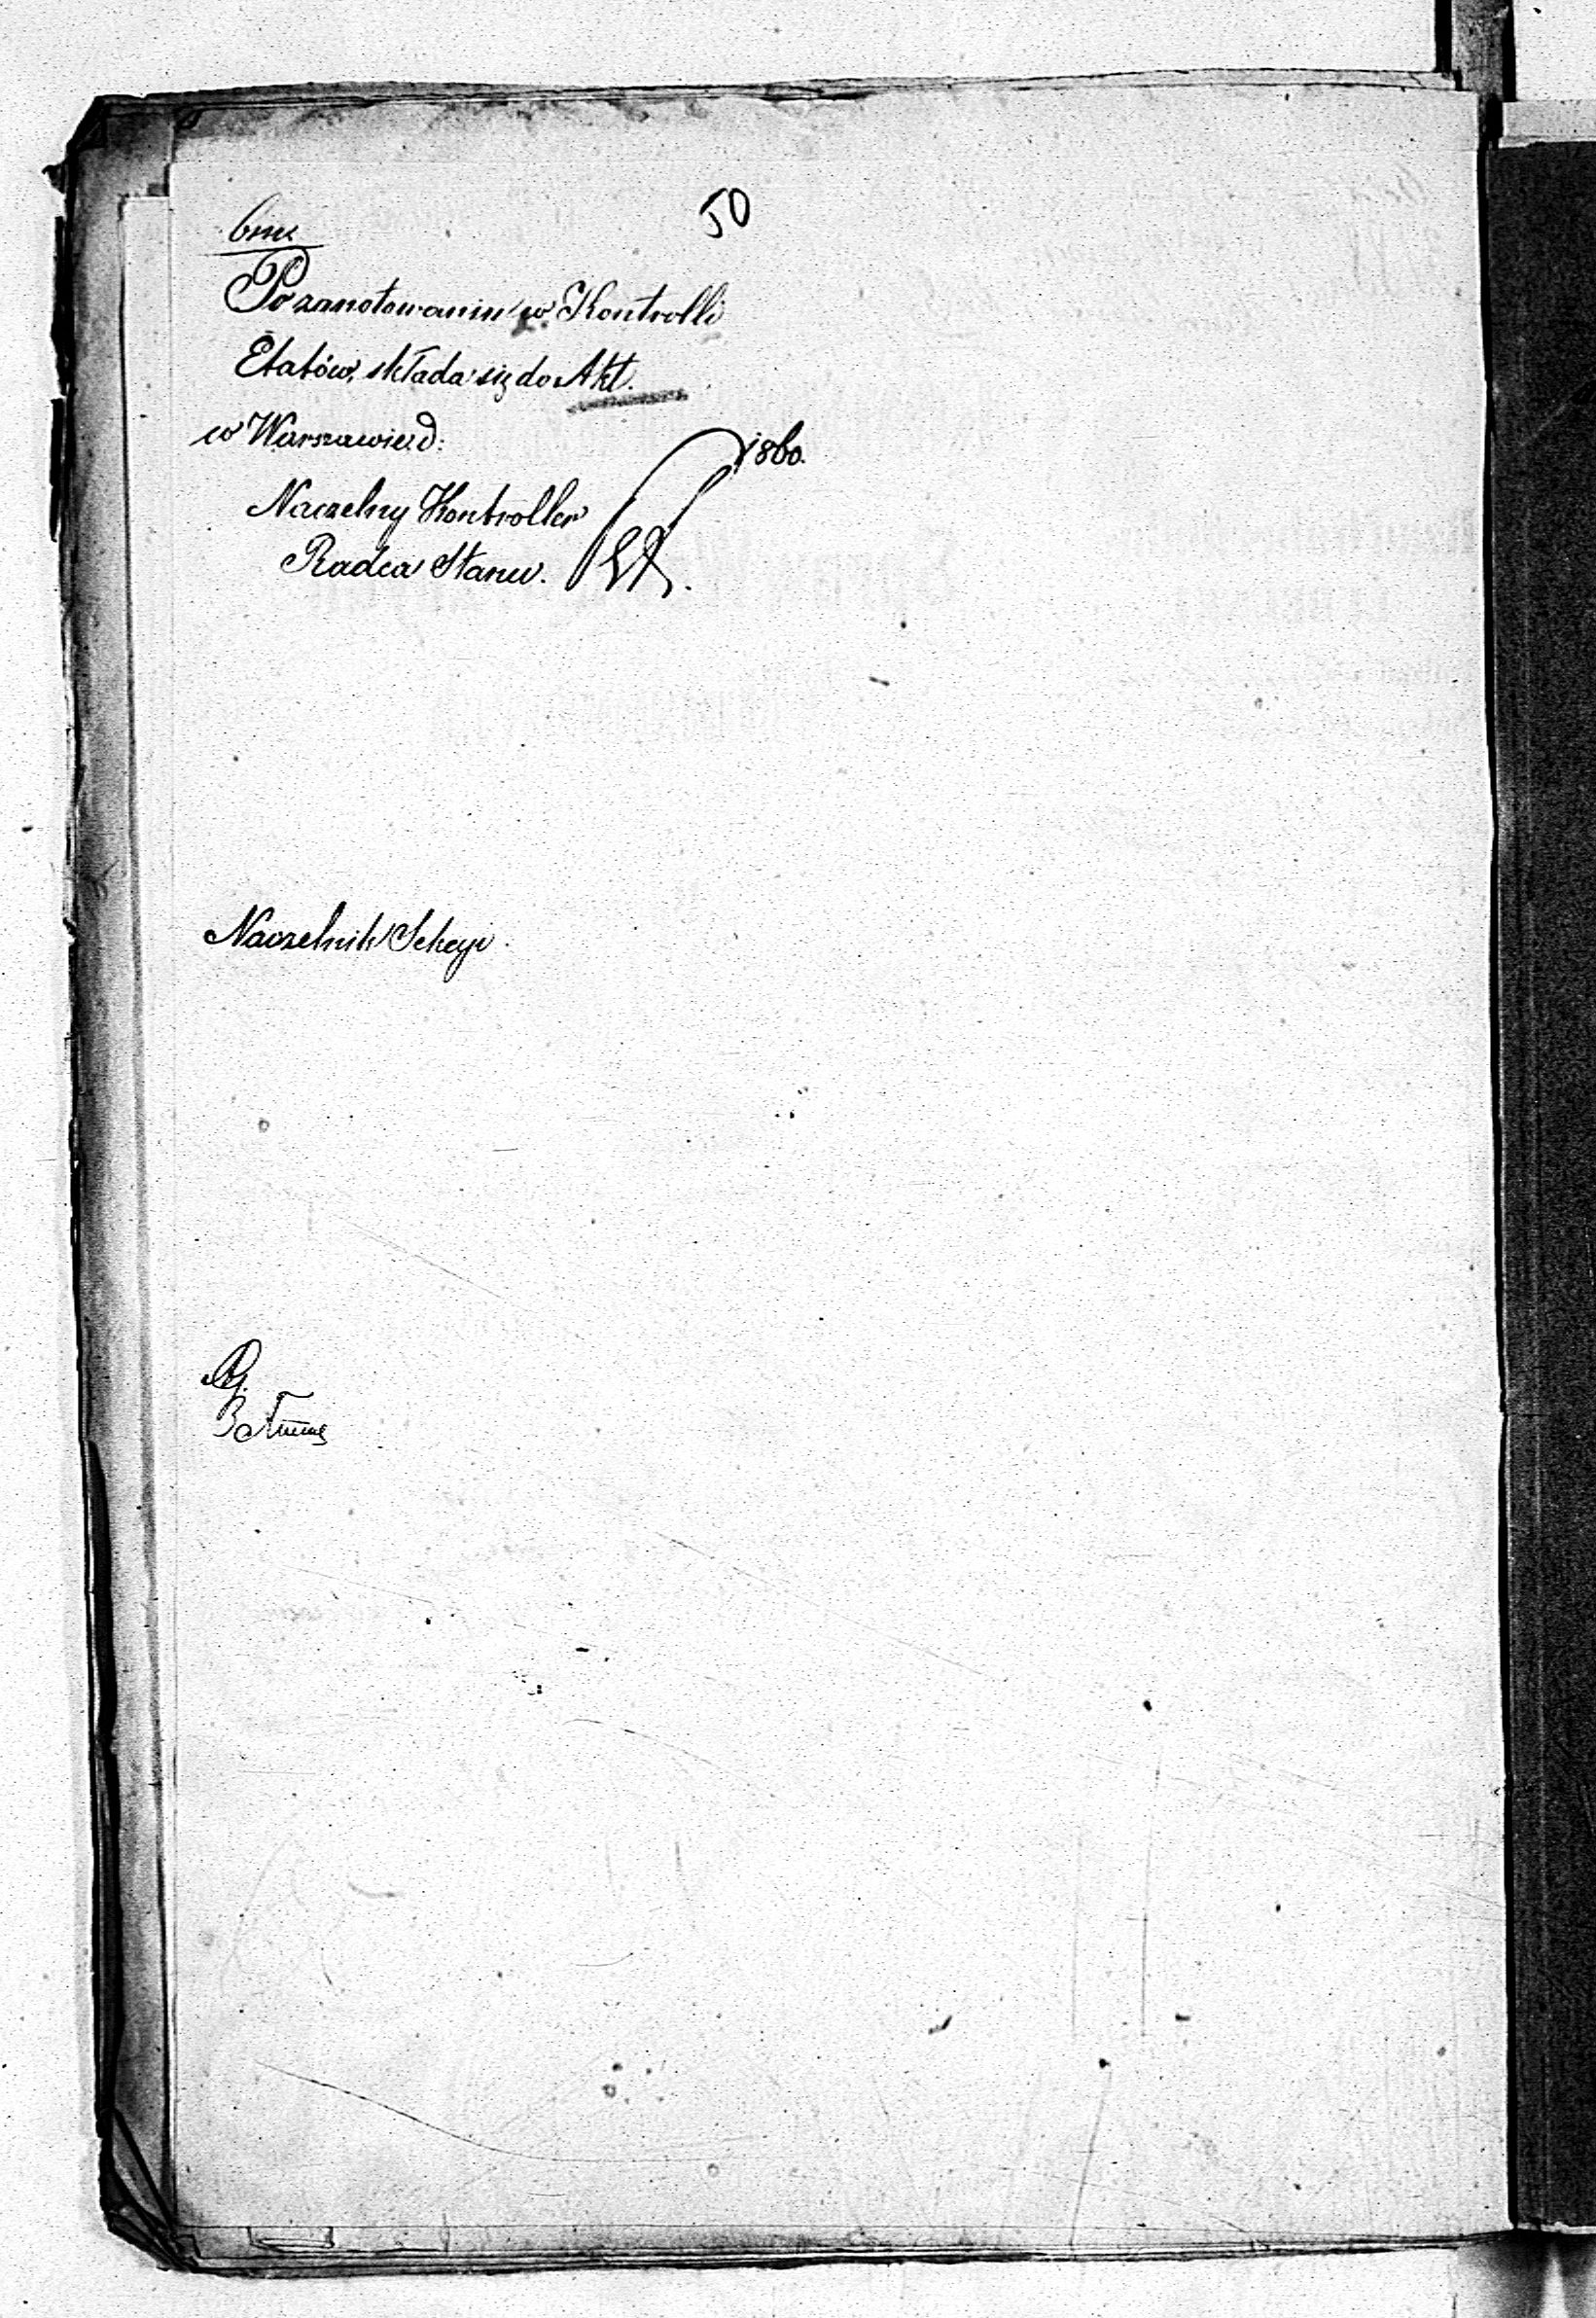 50
Po zanotowaniu w Kontrolli
Etatów, składa się do Akt.
w Warszawie d: 1860.
Naczelny Kontroller
Radca Stanu.
Naczelnik Sekcyi